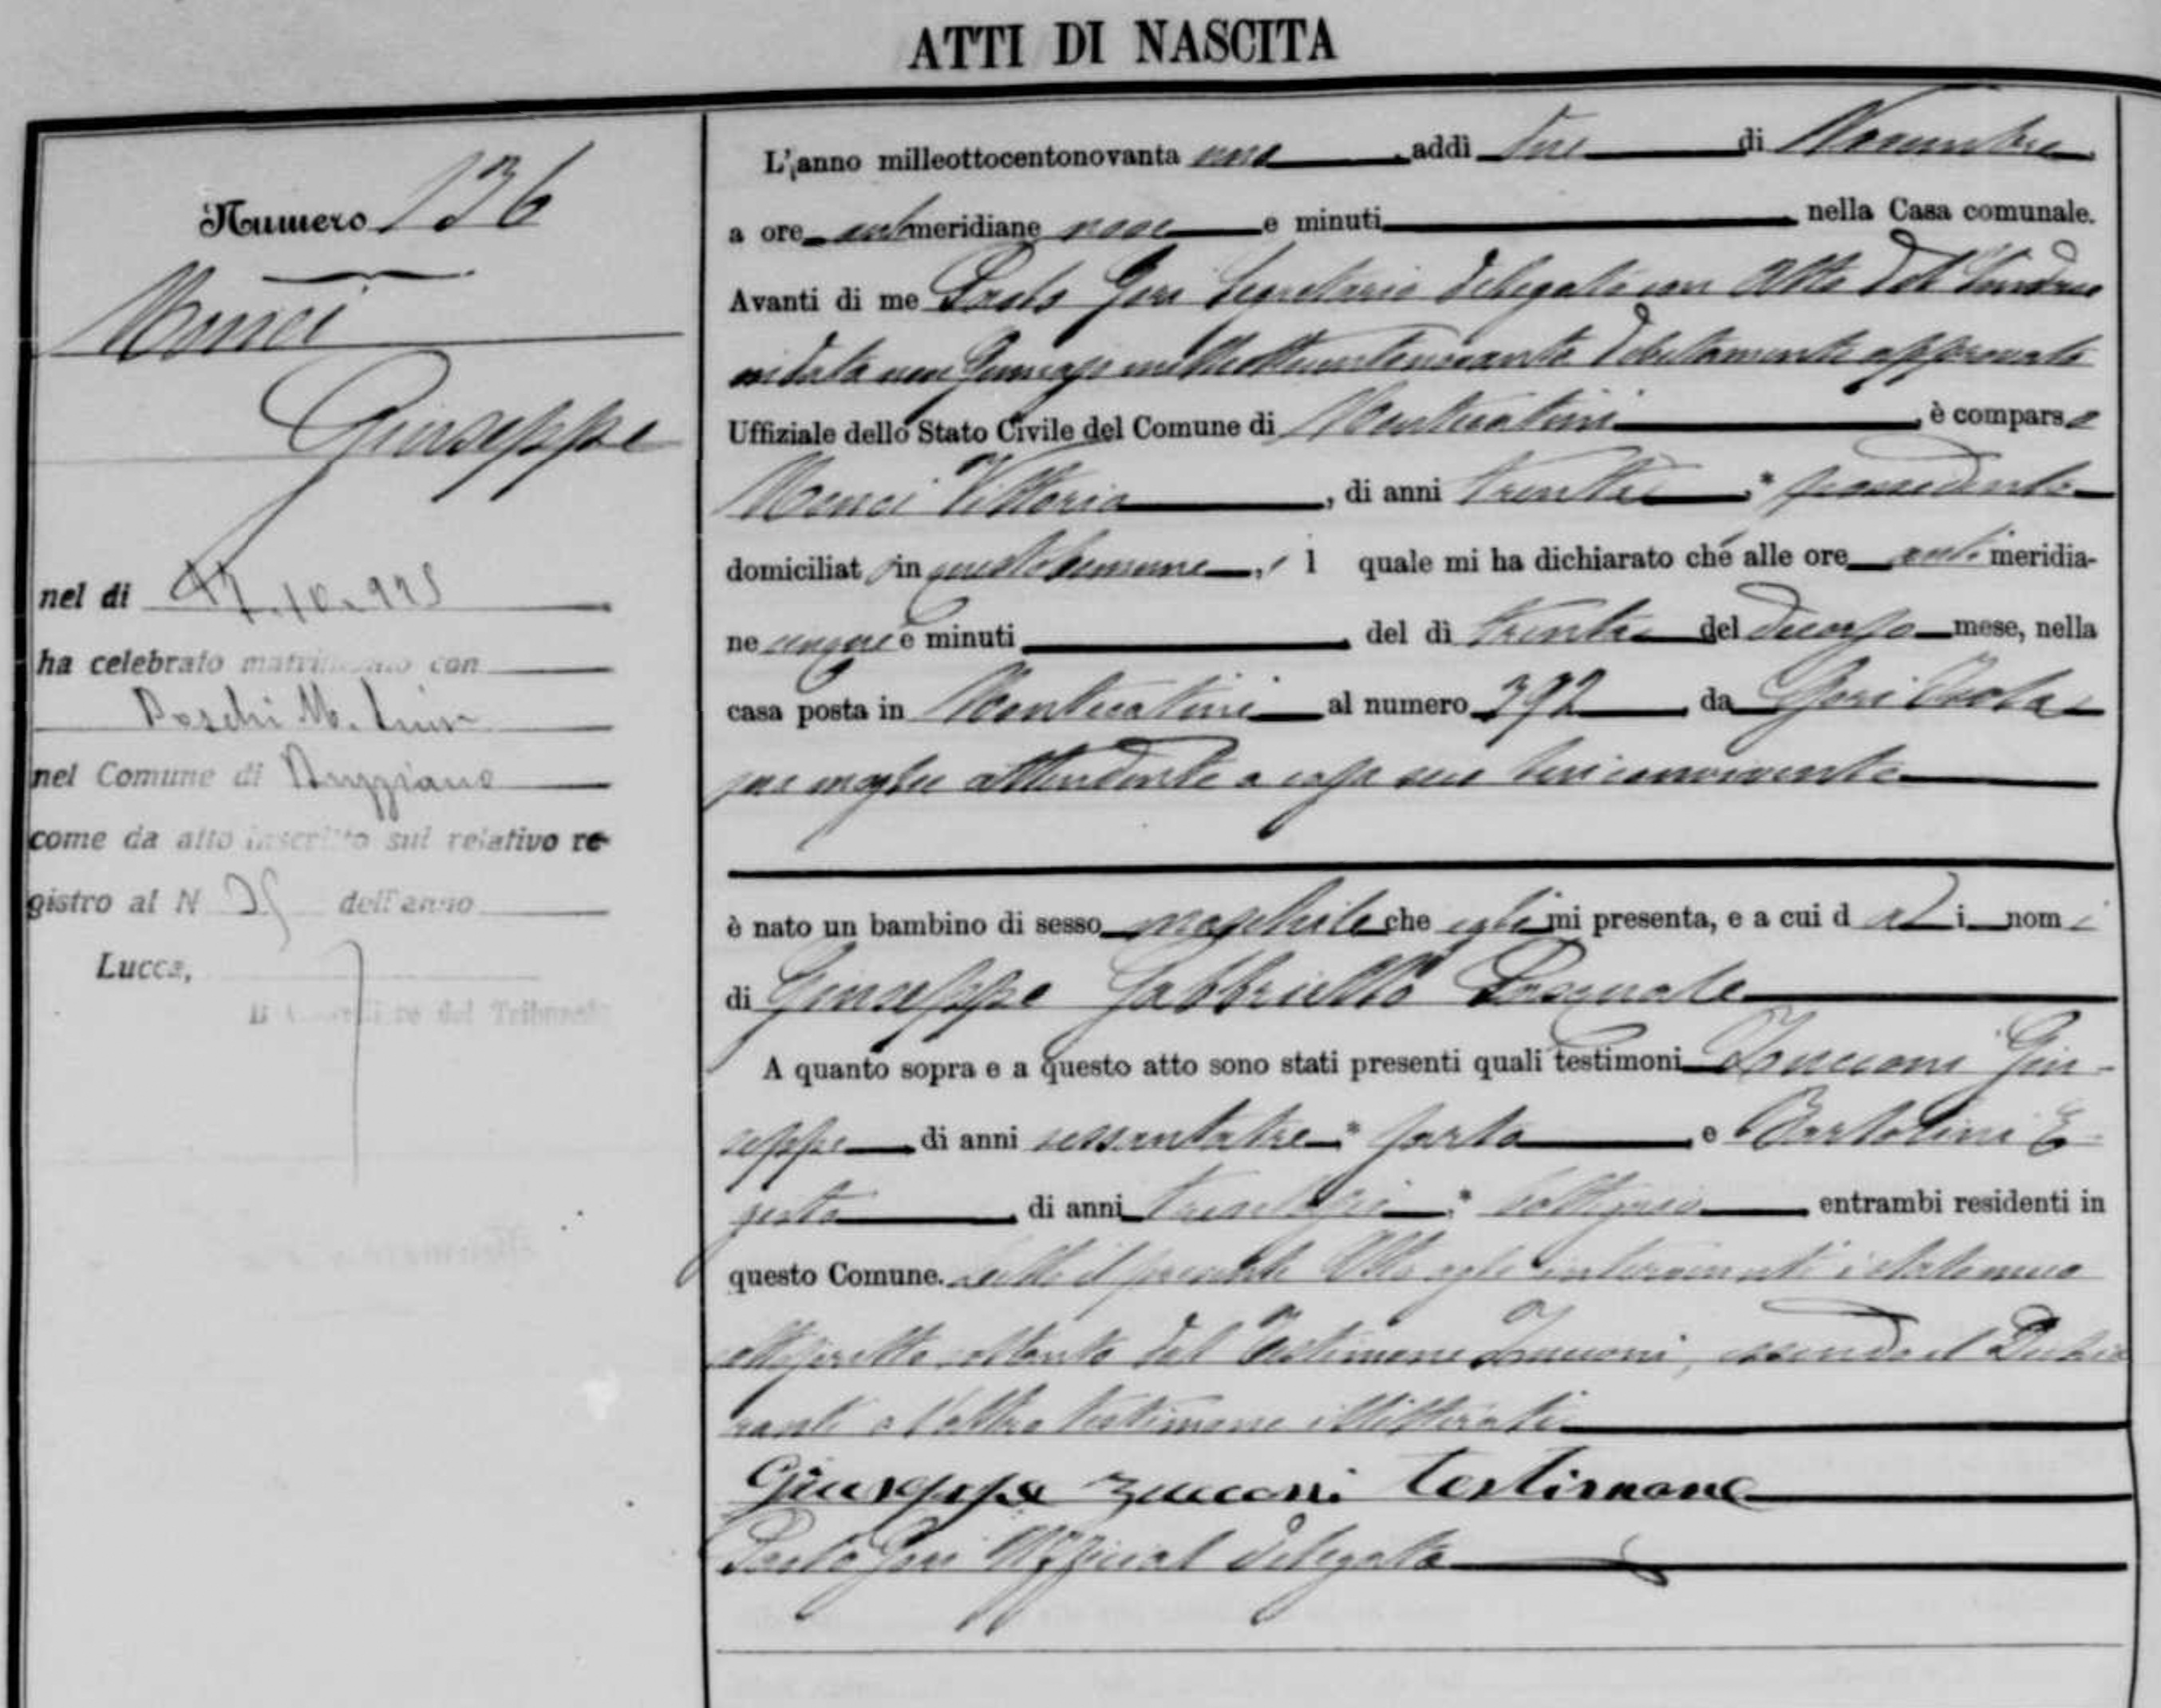 ATTI DI NASCITA
Numero 136
Menci
Giuseppe
nel di 17.10.925
ha celebrato matrimonio con
M.
nel Comune di Buggiano
come da atto inscritto sul relativo re-
gistro al N 35 dell'anno
Lucca,
Il Cancelliere del Tribunale
L'anno milleottocentonovanta uno addì tre di Novembre
a ore antimeridiane nove e minuti nella Casa comunale.
Avanti di me Paolo Gori Segretario delegato con Atto del Sindaco
in data nove Gennajo milleottocentonovanta debitamente approvato
Uffiziale dello Stato Civile del Comune di Montecatini, è comparso
Menci Vittorio, di anni, possidente
domiciliato in questo Comune, il quale mi ha dichiarato che alle ore anti meridia-
ne cinque e minuti del dì trenta del decorso mese, nella
casa posta in Montecatini al numero 392 da Gori Isola
sua moglie attendente a casa seco lui convivente
è nato un bambino di sesso maschile che egli mi presenta, e a cui dà i nomi
di Giuseppe Gabbriello Pasquale
A quanto sopra e a questo atto sono stati presenti quali testimoni Zucconi Giu-
seppe di anni sessantatre, sarto e Bartolini E-
gisto di anni trentasei, entrambi residenti in
questo Comune. Letto il presente Atto agli intervenuti è stato meco
sottoscritto soltanto dal Testimone Zucconi, essendo il Dichia
rante e l'altro testimone illitterati
Giuseppe Zucconi testimone
Paolo Gori Uffizial delegato